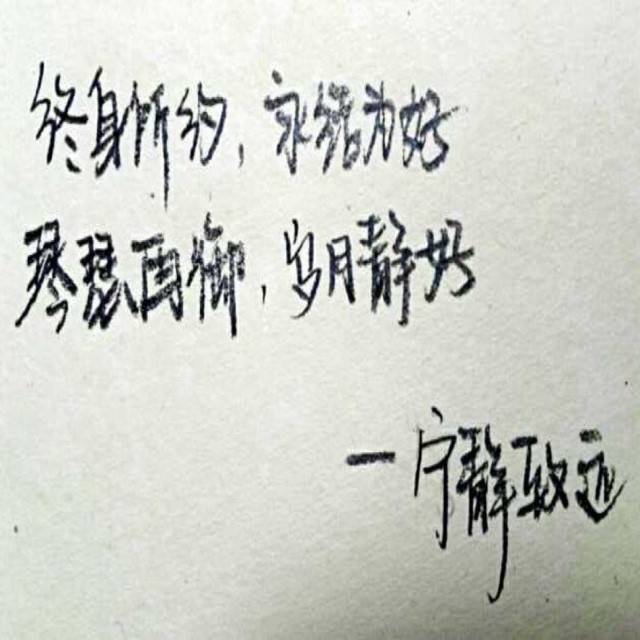 终身所约，永结为好
琴瑟再御，岁月静好
—宁静致远